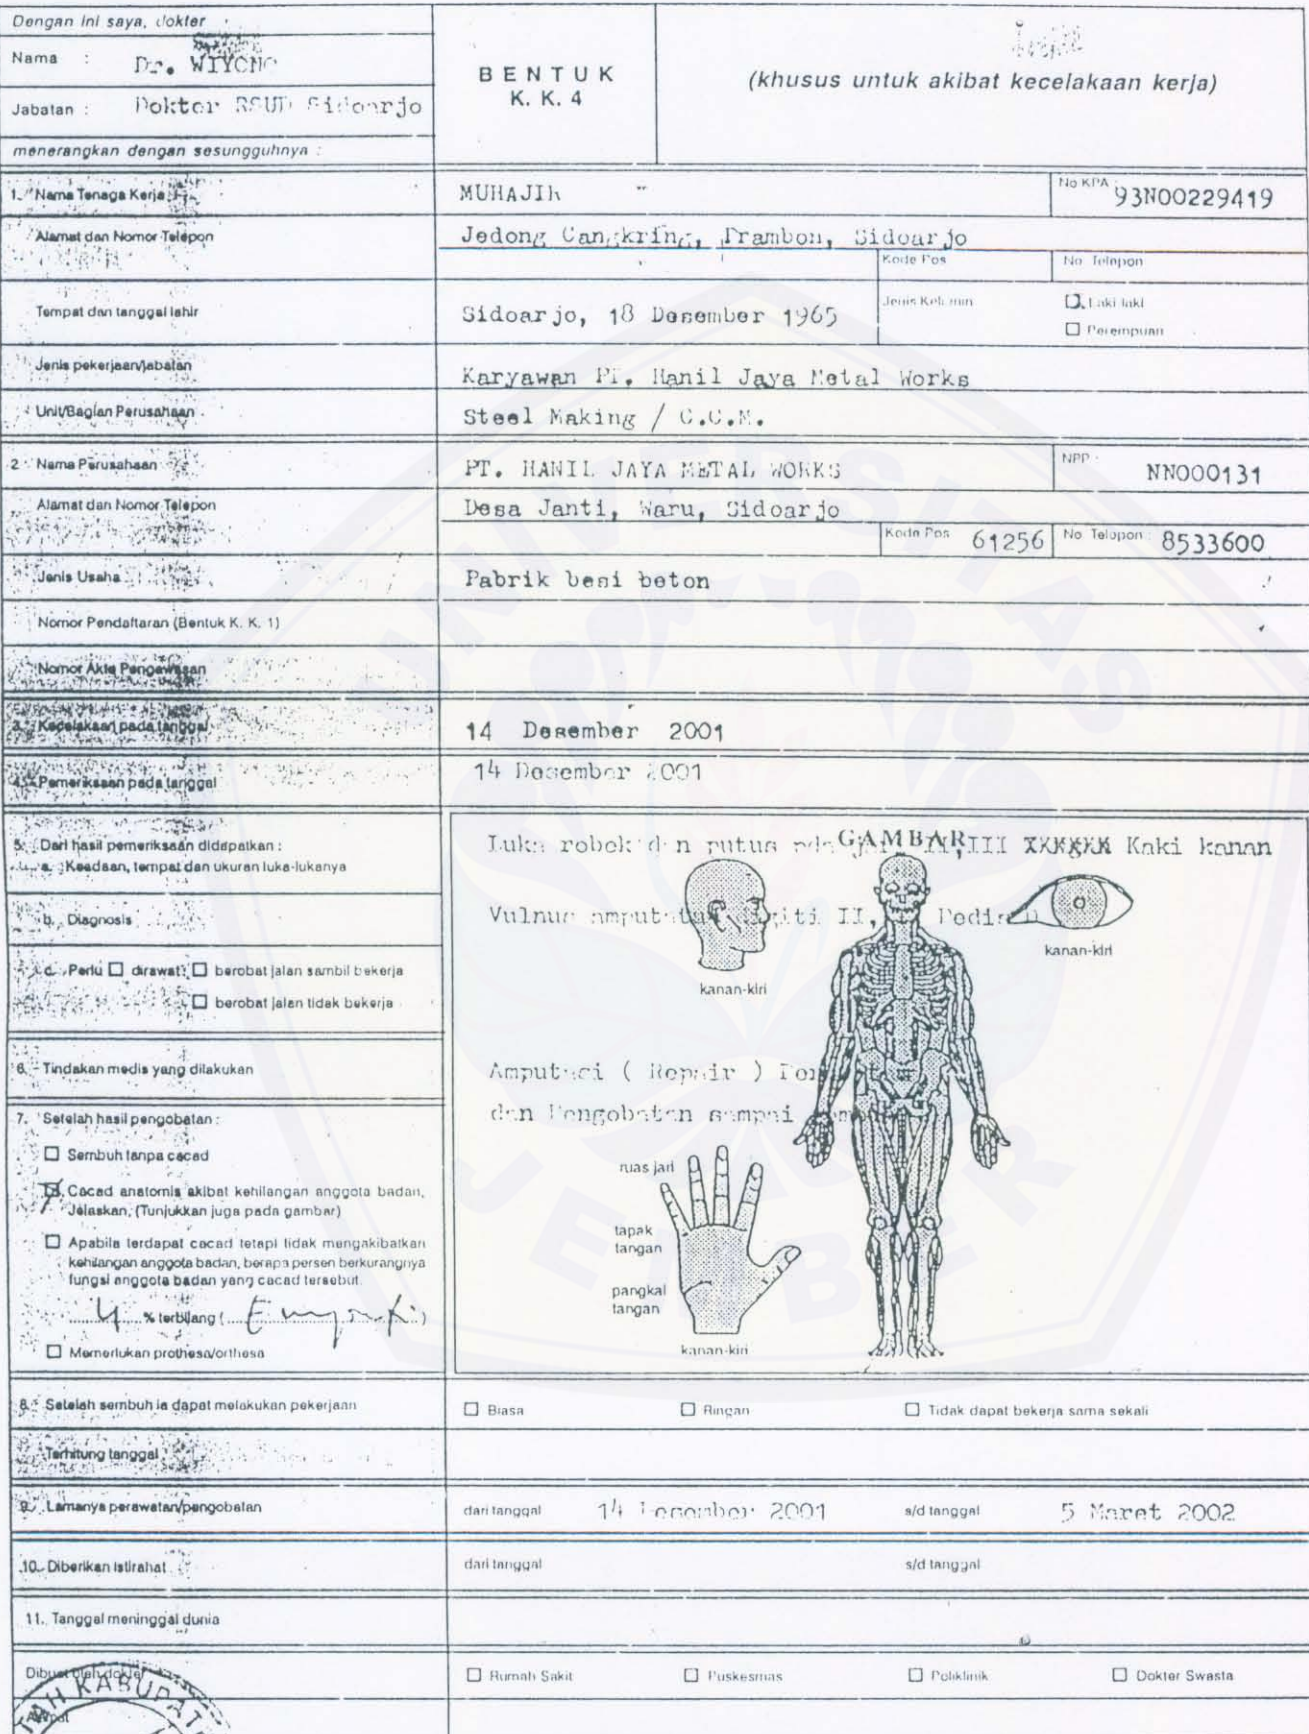 Dengan ini saya, dokter
Nama : Dr. WIYONO
Jabatan : Dokter RSUD Sidoarjo
menerangkan dengan sesungguhnya :
BENTUK
K. K. 4
(khusus untuk akibat kecelakaan kerja)
1. Nama Tenaga Kerja
MUHAJIR
No KPA : 93N00229419
Alamat dan Nomor Telepon
Jedong Cangkring, Prambon, Sidoarjo
Kode Pos
No. Telepon
Tempat dan tanggal lahir
Sidoarjo, 18 Desember 1965
Jenis Kelamin
Laki-laki
Perempuan
Jenis pekerjaan/jabatan
Karyawan PT. Hanil Jaya Metal Works
Unit/Bagian Perusahaan
Steel Making / C.C.M.
2. Nama Perusahaan
PT. HANIL JAYA METAL WORKS
NPP : NN000131
Alamat dan Nomor Telepon
Desa Janti, Waru, Sidoarjo
Kode Pos 61256
No. Telepon : 8533600
Jenis Usaha
Pabrik besi beton
Nomor Pendaftaran (Bentuk K. K. 1)
Nomor Akte Pengawasan
3. Kecelakaan pada tanggal
14 Desember 2001
4. Pemeriksaan pada tanggal
14 Desember 2001
5. Dari hasil pemeriksaan didapatkan :
a. Keadaan, tempat dan ukuran luka-lukanya
b. Diagnosis
c. Perlu dirawat berobat jalan sambil bekerja
berobat jalan tidak bekerja
6. Tindakan medis yang dilakukan
7. Setelah hasil pengobatan :
Sembuh tanpa cacad
Cacad anatomis akibat kehilangan anggota badan,
Jelaskan, (Tunjukkan juga pada gambar)
Apabila terdapat cacad tetapi tidak mengakibatkan
kehilangan anggota badan, berapa persen berkurangnya
fungsi anggota badan yang cacad tersebut.
4 % terbilang ( )
Memerlukan prothesa/orthesa
GAMBAR
Luka robek dan putus III Kaki kanan
Vulnus II, Pedis
kanan-kiri
kanan-kiri
Amputasi ( Repair )
dan Pengobatan sampai
ruas jari
tapak
tangan
pangkal
tangan
kanan-kiri
8. Setelah sembuh ia dapat melakukan pekerjaan
Biasa
Ringan
Tidak dapat bekerja sama sekali
Terhitung tanggal
9. Lamanya perawatan/pengobatan
dari tanggal 14 Desember 2001
s/d tanggal 5 Maret 2002
10. Diberikan istirahat
dari tanggal
s/d tanggal
11. Tanggal meninggal dunia
Dibuat oleh dokter
Rumah Sakit
Puskesmas
Poliklinik
Dokter Swasta
UNIVERSITAS
JEMBER